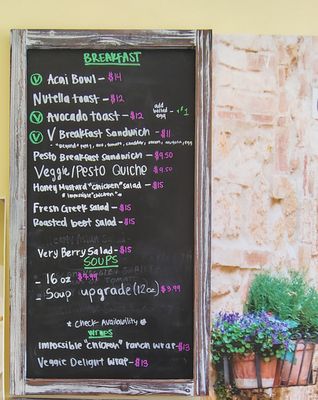 BREAKFAST
V Acai Bowl - $14
Nutella toast - $12
V Avocado toast - $12 add boiled egg +$1
V V Breakfast Sandwich - $11
Pesto Breakfast Sandwich - $9.50
Veggie/Pesto Quiche $9.50
Honey Mustard "chicken" salad - $15
* Impossible "chicken" *
Fresh Greek Salad - $15
Roasted beet Salad - $15
Very Berry Salad - $15
SOUPS
- 16 oz $7.99
- Soup upgrade (12oz) $3.99
* Check Availability *
WRAPS
Impossible "chicken" ranch wrap - $13
Veggie Delight wrap - $13